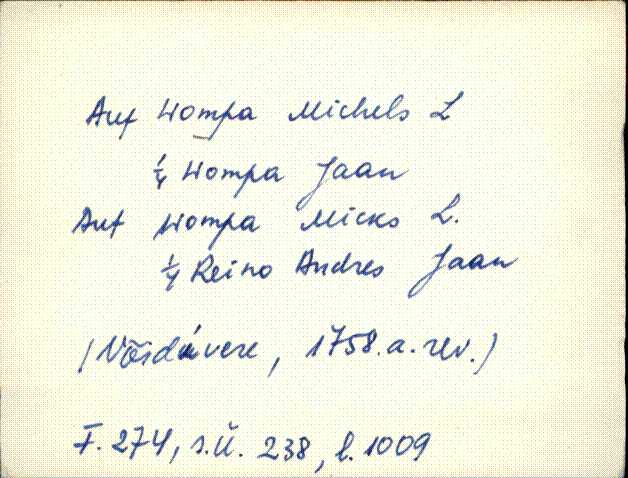 Auf Wompa Michels L
1/4 Wompa Jaan
Auf Wompa Micks L.
1/4 Reino Andres Jaan
(Võsdúvere, 1758.a.rev.)
F. 274, s.ü. 238, l. 1009